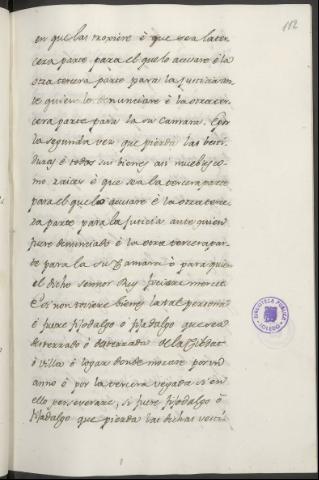 112
en que las troxiere é que sea la ter
cera parte para el que lo acusare é la
otra tercera parte para la Justicia an
te quien lo denunciare é la otra ter
cera parte para la su Camara. é por
la segunda vez que pierda las besti
duras é todos sus bienes asi muebles co
mo raices é que sea la tercera parte
para el que lo acusare é la otra terce
ra parte para la Justicia ante quien
fuere denunciado é la otra tercera par
te para la su Camara ó para quien
el dicho señor Rey ficiere merced
E si non toviere bienes la tal persona
é fuere fijodalgo ó fijadalgo que sea
desterrado ó desterrada de la Cibdat
ó villa ó logar donde morare por un
anno é por la tercera vegada si en
ello perseverare, si fuere fijodalgo ó
fijadalgo que pierda las dichas vesti
BIBLIOTECA PUBLICA
TOLEDO